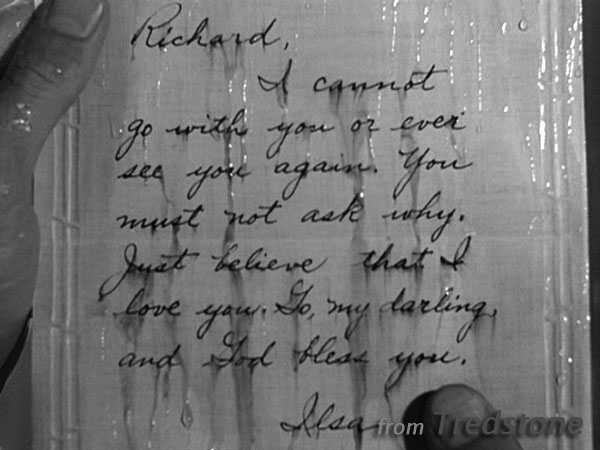 Richard,
I cannot
go with you or ever
see you again. You
must not ask why.
Just believe that I
love you. Go, my darling,
and God bless you.
Ilsa
from Tredstone